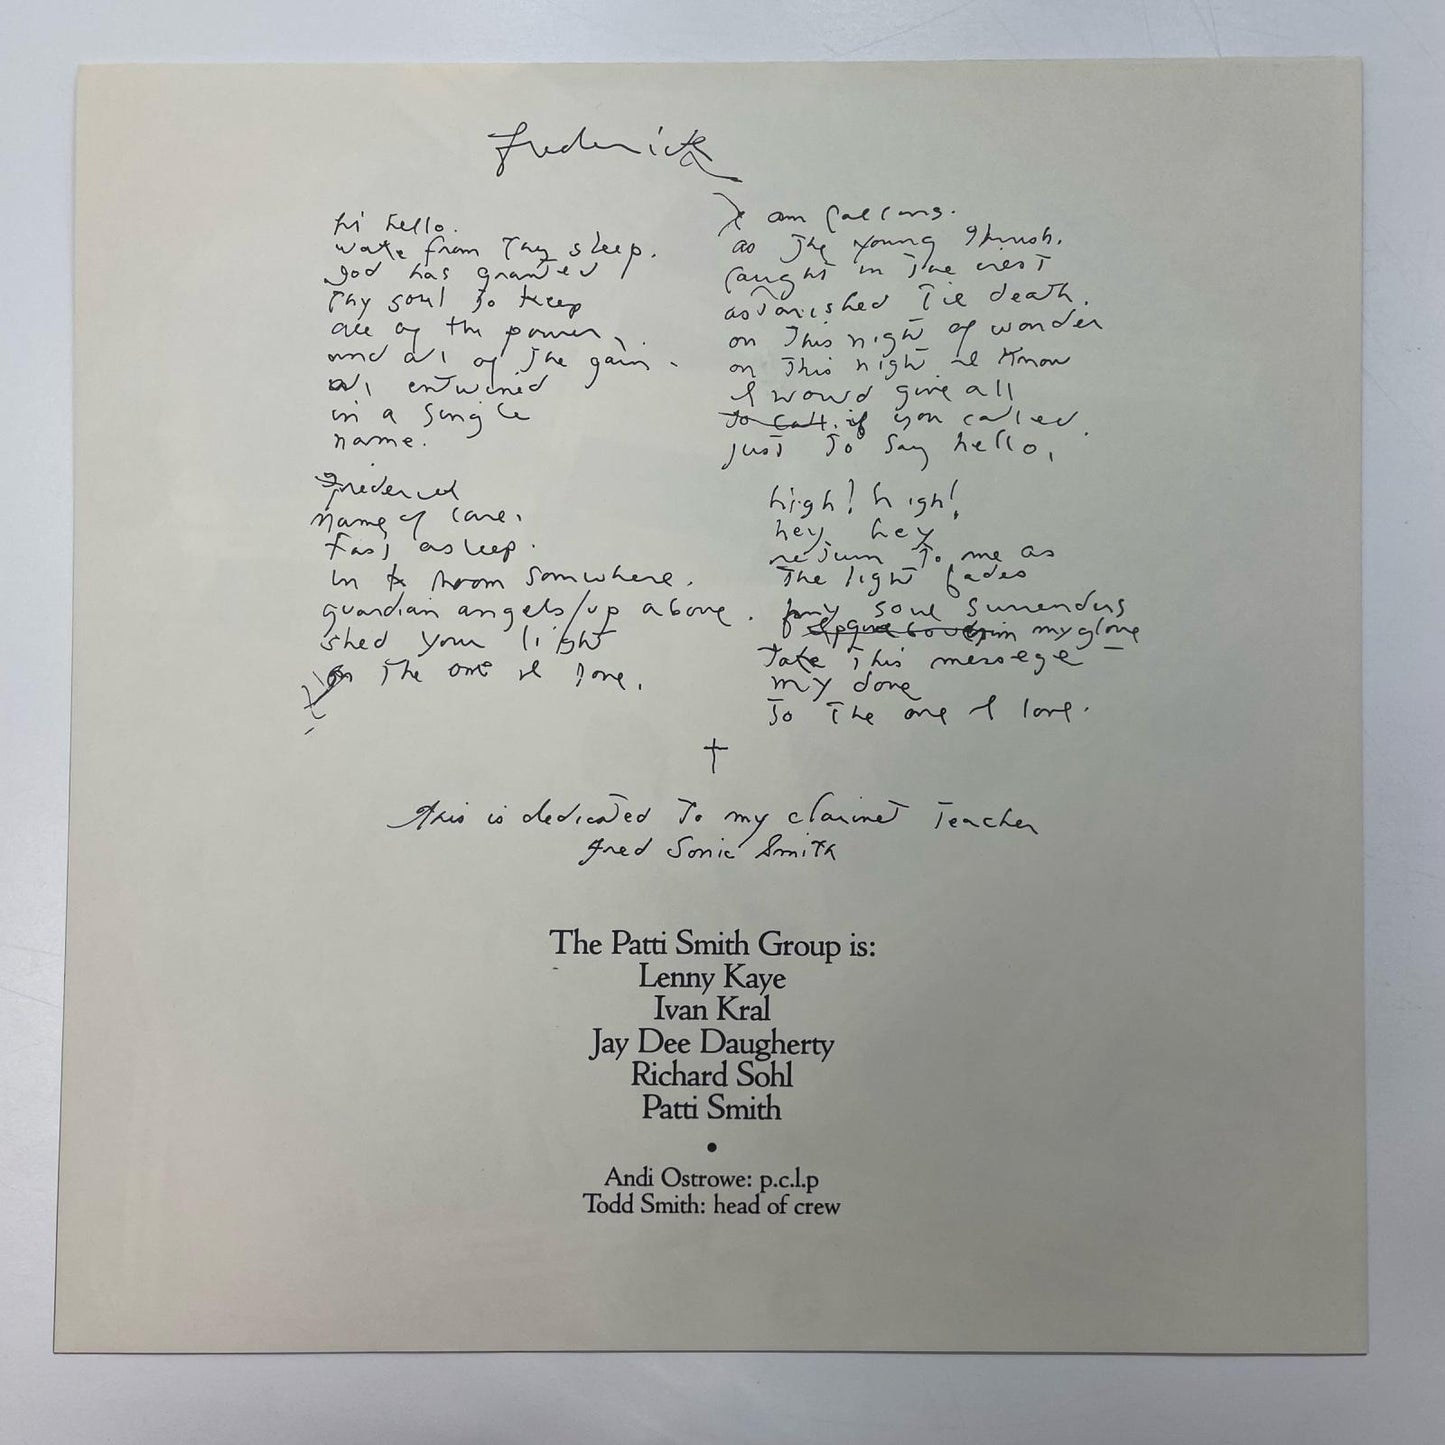 frederick
hi hello.
wake from thy sleep.
god has granted
thy soul to keep
all of the power
and all of the gain.
all entwined
in a single
name.
frederick
name of care.
fast asleep.
in a room somwhere.
guardian angels/up above.
shed your light
on the one I love.
I am
as the young thrush.
caught in the
astonished death.
on this night of wonder
on this night I know
I would give all
to call. if you called.
just to say hello.
high! high!
hey hey
return to me as
the light fades
my soul surrenders
my glove
take this messege
my dove
to the one I love.
†
this is dedicated to my clarinet teacher
fred sonic Smith
The Patti Smith Group is:
Lenny Kaye
Ivan Kral
Jay Dee Daugherty
Richard Sohl
Patti Smith
•
Andi Ostrowe: p.c.l.p
Todd Smith: head of crew